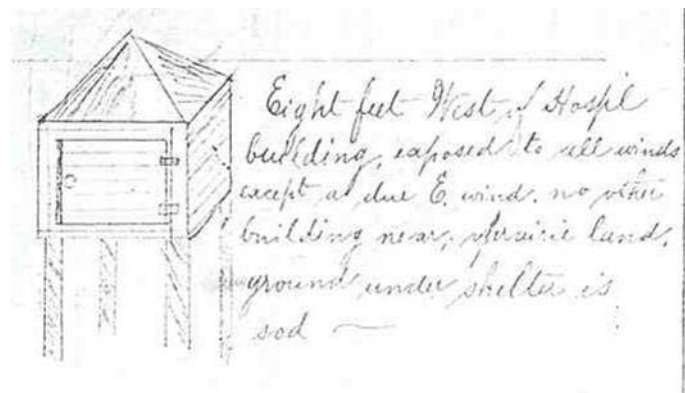 Eight feet West of Hospl
building, exposed to all winds
except a due E. wind. no other
building near, prairie land,
ground under shelter is
sod —